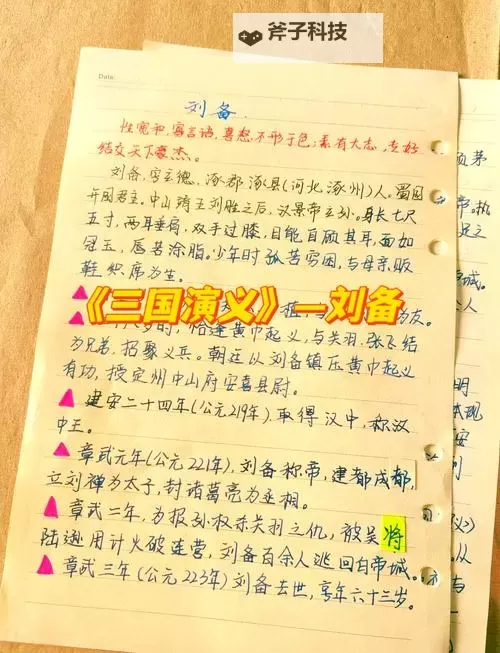 斧子科技
Date:
刘备
性宽和,寡言语,喜怒不形于色;素有大志,专好
结交天下豪杰。
刘备,字玄德,涿郡涿县(河北,涿州)人。蜀国
开国君主。中山靖王刘胜之后,汉景帝玄孙。身长七尺
五寸,两耳垂肩,双手过膝,目能自顾其耳,面如
冠玉,唇若涂脂。少年时孤苦穷困,与母亲贩
鞋织席为生。
《三国演义》—刘备
为友。
八岁时,恰逢黄巾起义,与关羽.张飞结
为兄弟,招聚义兵。朝廷从刘备镇压黄巾起义
有功,授定州中山府安喜县尉。
建安二十四年(公元219年)取得汉中,称汉
中王。
章武元年(公元221年),刘备称帝,建都成都,
立刘禅为太子,封诸葛亮为丞相。
章武二年,为报孙权杀关羽之仇,被吴将
陆逊用计火破连营,刘备百余人逃回白帝城。
章武三年(公元223年)刘备去世,享年六十三岁。